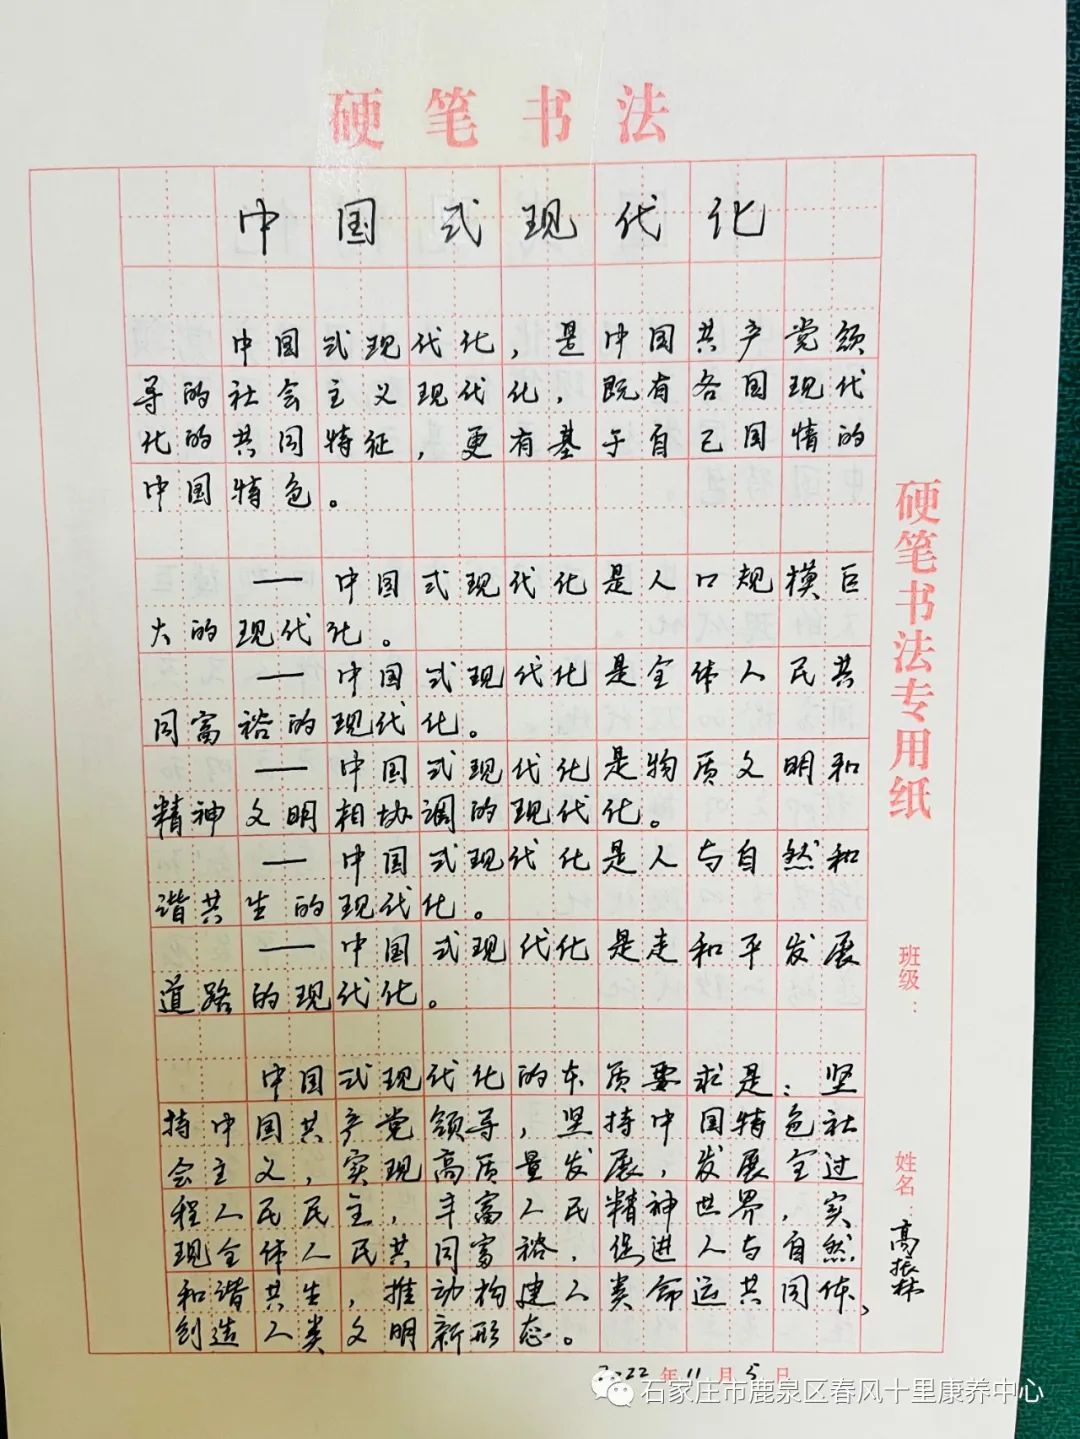 硬笔书法
中国式现代化
中国式现代化，是中国共产党领
导的社会主义现代化，既有各国现代
化的共同特征，更有基于自己国情的
中国特色。
——中国式现代化是人口规模巨
大的现代化。
——中国式现代化是全体人民共
同富裕的现代化。
——中国式现代化是物质文明和
精神文明相协调的现代化。
——中国式现代化是人与自然和
谐共生的现代化。
——中国式现代化是走和平发展
道路的现代化。
中国式现代化的本质要求是：坚
持中国共产党领导，坚持中国特色社
会主义，实现高质量发展，发展全过
程人民民主，丰富人民精神世界，实
现全体人民共同富裕，促进人与自然
和谐共生，推动构建人类命运共同体，
创造人类文明新形态。
2022年11月5日
硬笔书法专用纸
班级：
姓名：高振林
石家庄市鹿泉区春风十里康养中心